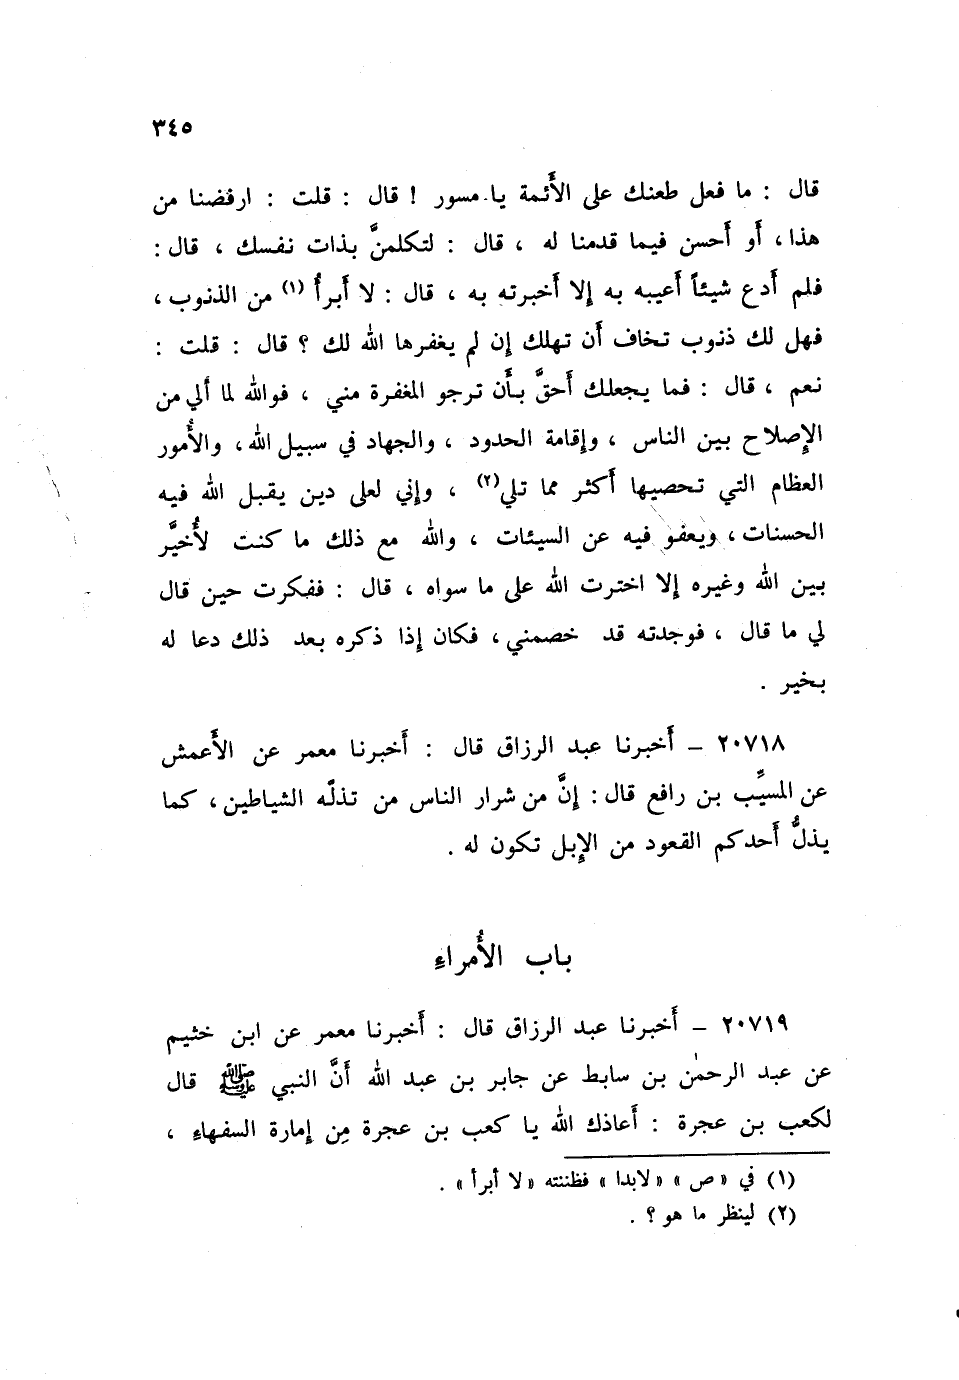 ٣٤٥
قال : ما فعل طعنك على الأَئمة يا مسور ! قال : قلت : ارفضنا من
هذا ، أو أَحسن فيما قدمنا له ، قال : لتكلمنَّ بذات نفسك ، قال :
فلم أَدع شيئاً أَعيبه به إلا أَخبرته به ، قال : لا أَبرأُ (١) من الذنوب ،
فهل لك ذنوب تخاف أَن تهلك إن لم يغفرها الله لك ؟ قال : قلت :
نعم ، قال : فما يجعلك أَحقَّ بأَن ترجو المغفرة مني ، فوالله لما ألي من
الإِصلاح بين الناس ، وإقامة الحدود ، والجهاد في سبيل الله ، والأُمور
العظام التي تحصيها أَكثر مما تلي(٢) ، وإني لعلى دين يقبل الله فيه
الحسنات ، ويعفو فيه عن السيئات ، والله مع ذلك ما كنت لأُخيَّر
بين الله وغيره إلا اخترت الله على ما سواه ، قال : ففكرت حين قال
لي ما قال ، فوجدته قد خصمني ، فكان إذا ذكره بعد ذلك دعا له
بخير .
٢٠٧١٨ – أَخبرنا عبد الرزاق قال : أَخبرنا معمر عن الأَعمش
عن المسيِّب بن رافع قال : إنَّ من شرار الناس من تذلّه الشياطين ، كما
يذلُّ أَحدكم القعود من الإِبل تكون له .
باب الأُمراءِ
٢٠٧١٩ – أَخبرنا عبد الرزاق قال : أَخبرنا معمر عن ابن خثيم
عن عبد الرحمٰن بن سابط عن جابر بن عبد الله أَنَّ النبي ﷺ قال
لكعب بن عجرة : أَعاذك الله يا كعب بن عجرة مِن إمارة السفهاءِ ،
(١) في « ص » « لابدا » فظننته « لا أبرأ » .
(٢) لينظر ما هو ؟ .